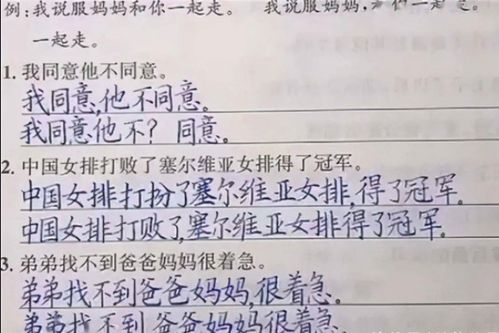 例:我说服妈妈和你一起走。 我说服妈妈,和你一起走。
一起走。
1. 我同意他不同意。
我同意,他不同意。
我同意他不? 同意。
2. 中国女排打败了塞尔维亚女排得了冠军。
中国女排打扮了塞尔维亚女排,得了冠军.
中国女排打败了,塞尔维亚女排得了冠军.
3. 弟弟找不到爸爸妈妈很着急。
弟弟找不到爸爸妈妈,很着急.
弟弟找不到爸爸,妈妈很着急.